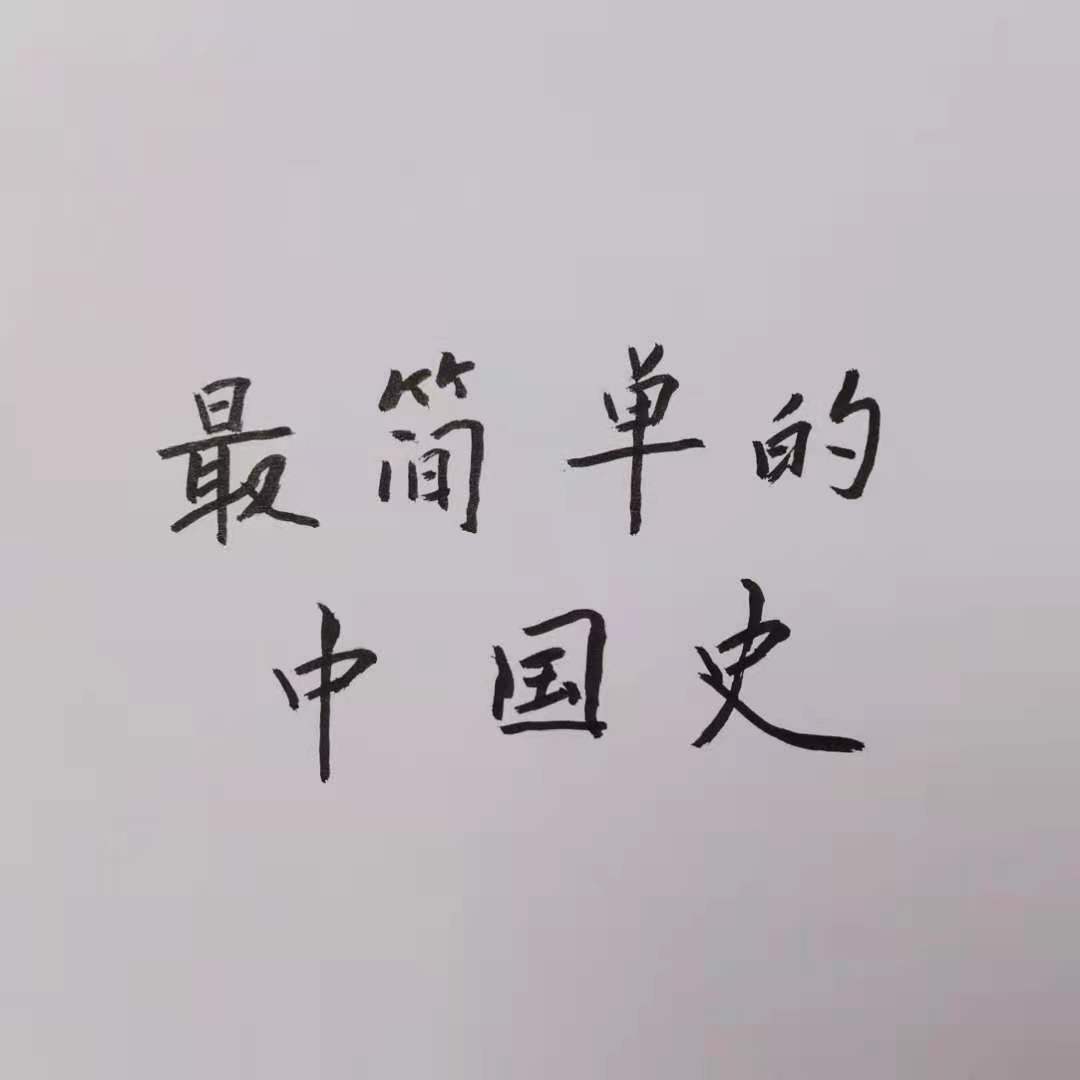 最简单的
中国史